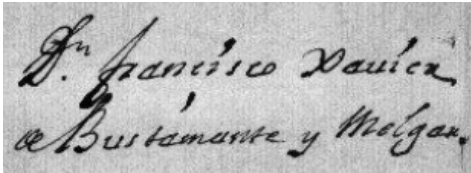 Dn. francisco Xavier
de Bustamante y Melgar.